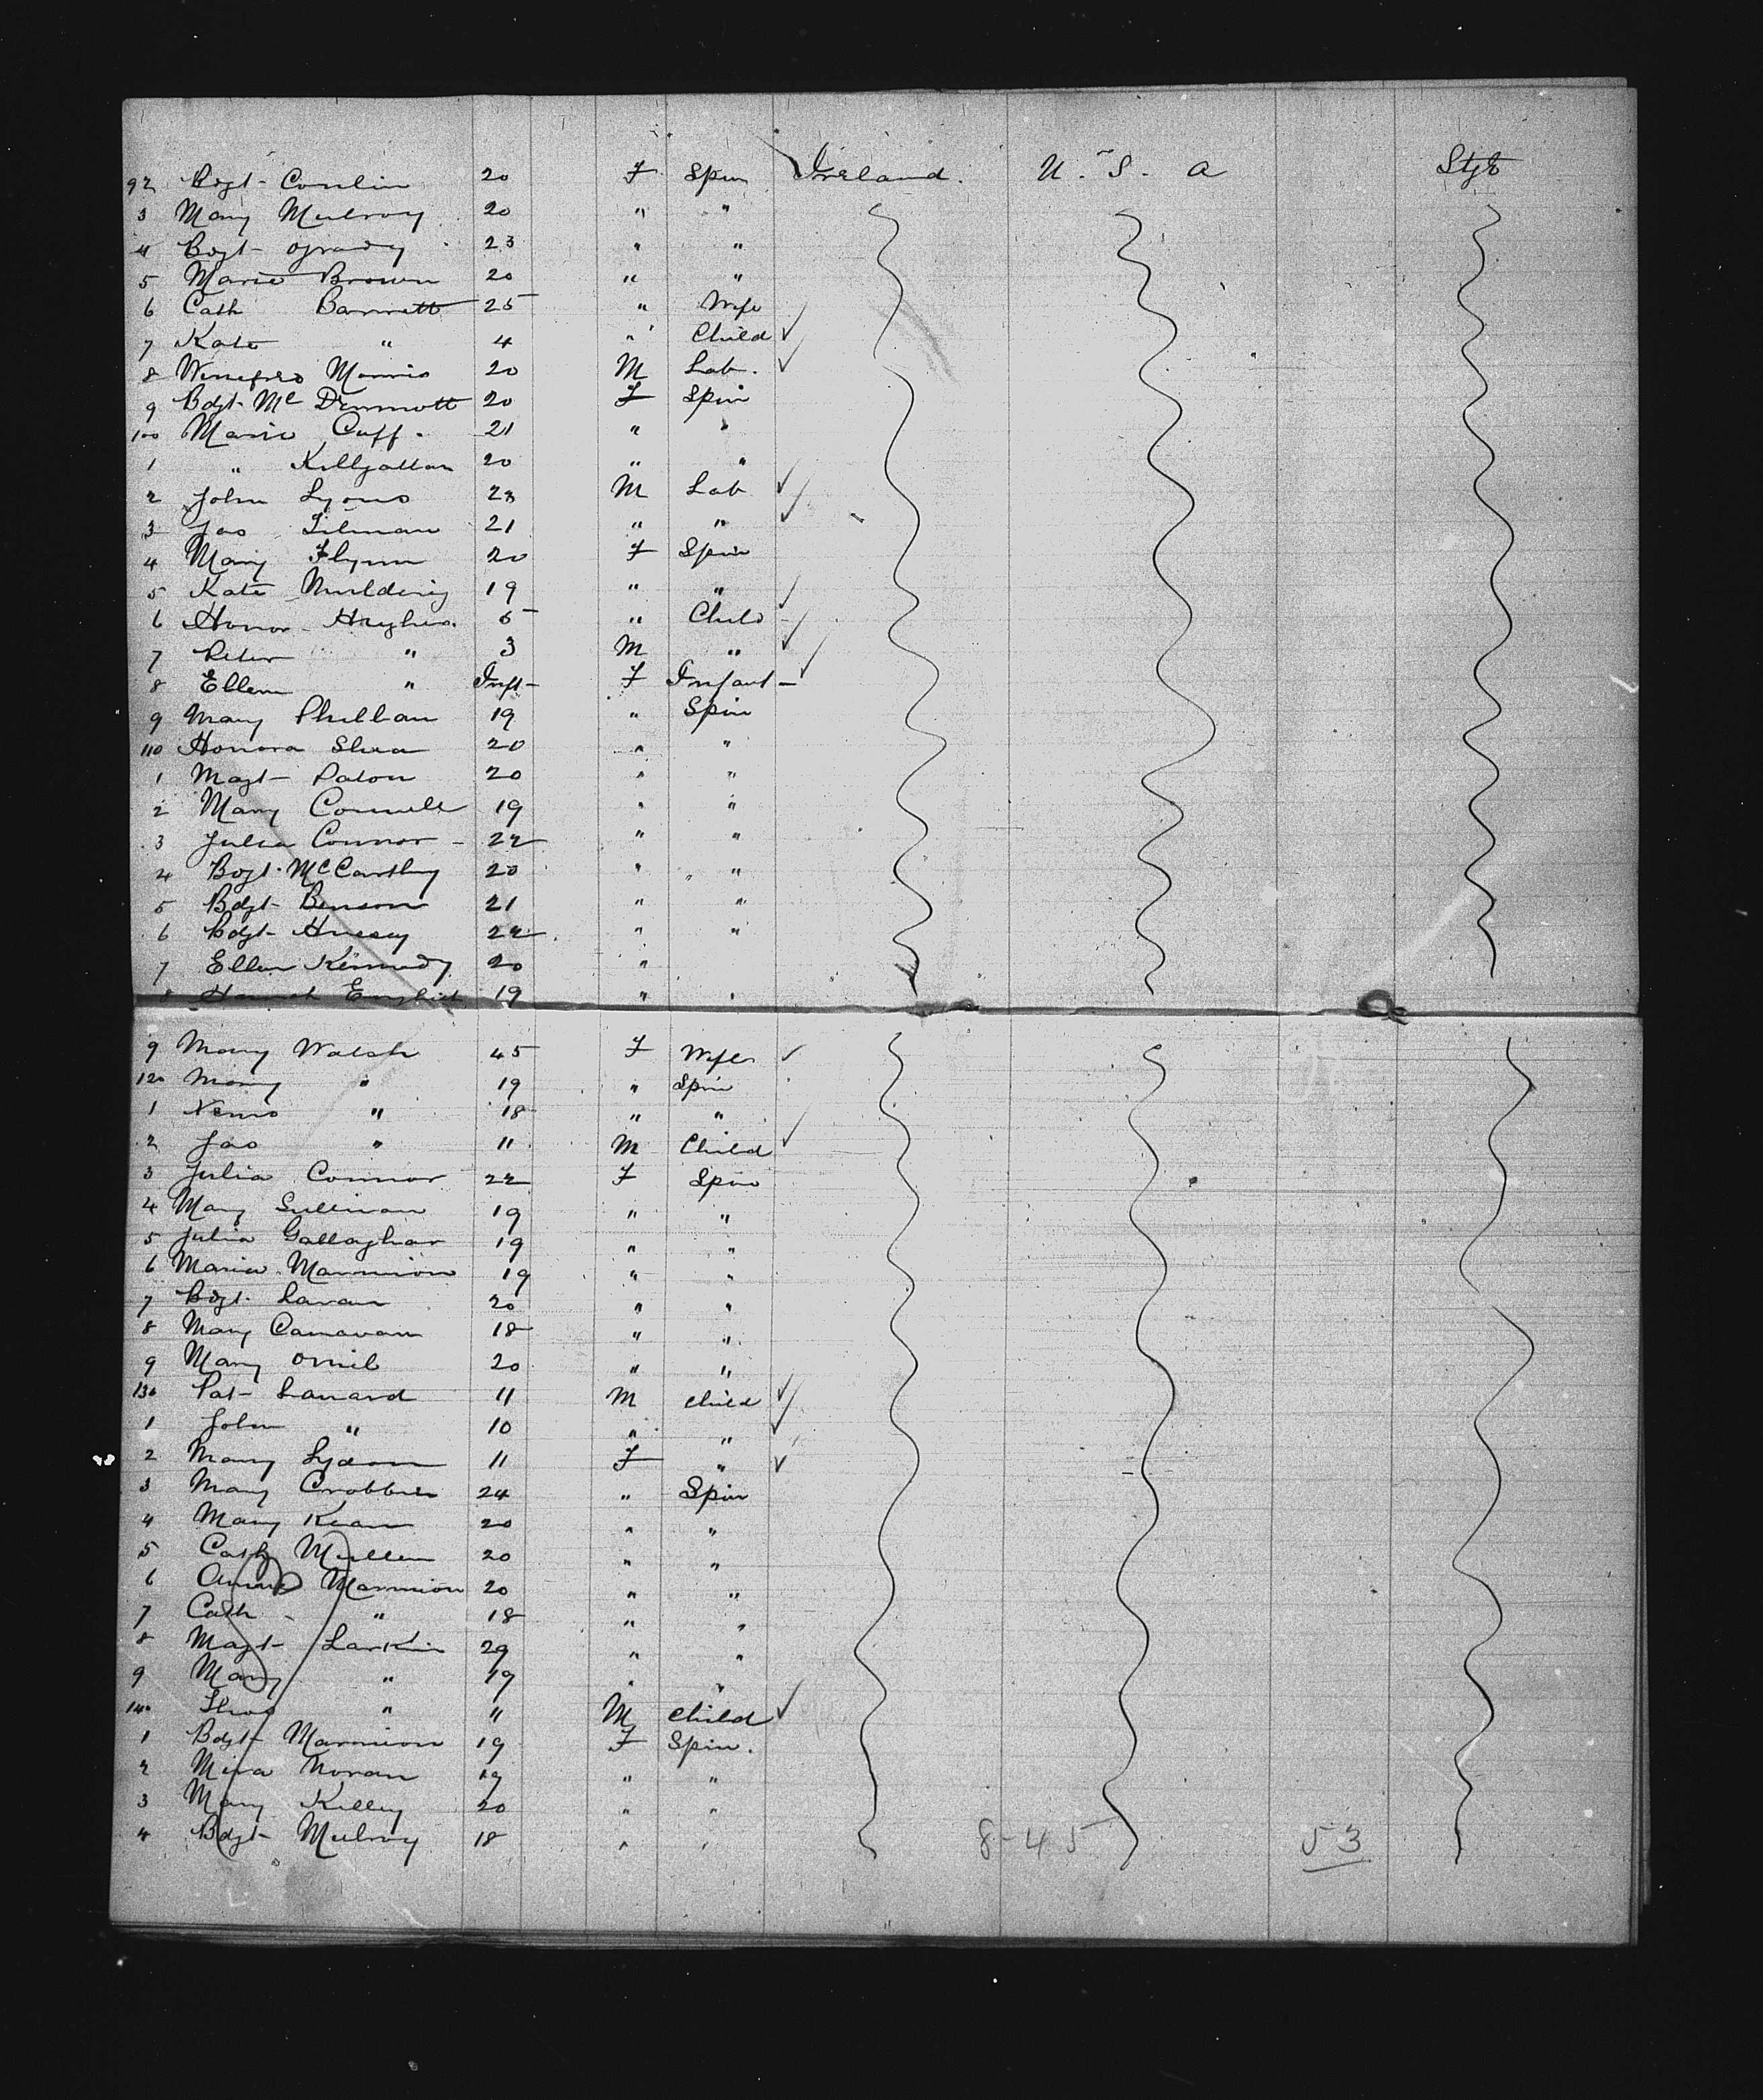 92 Bdgt- Conlin 20 F Spin Ireland. U. S. A Stge
3 Mary Mulroy 20 " "
4 Bdgt- Ogrady 23 " "
5 Marie Brown 20 " "
6 Cath Barrett 25 " Wife
7 Kate " 4 " Child ✓
8 Morris 20 M Lab. ✓
9 Bdgt- Mc Dermott 20 F Spin
100 Maria Cuff. 21 " "
1 " Killgallan 20 " "
2 John Lyons 23 M Lab ✓
3 Jas 21 " " ✓
4 Mary Flynn 20 F Spin
5 Kate 19 " " ✓
6 Honor Hughes 5 " Child
7 Peter " 3 M " ✓
8 Ellen " Inft- F Infant - ✓
9 Mary Philban 19 " Spin
110 Honora Shea 20 " "
1 Magt- Paton 20 " "
2 Mary Connell 19 " "
3 Julia Connor - 22 " "
4 Bdgt. McCarthy 20 " "
5 Bdgt- Benson 21 " "
6 Bdgt- Hussey 22 " "
7 Ellen Kennedy 20 "
8 Hannah English 19 " "
9 Mary Walsh 45 F Wife ✓
120 Mary " 19 " Spin
1 " 18 " "
2 Jas " 11 M Child ✓
3 Julia Connor 22 F Spin
4 Mary Sullivan 19 " "
5 Julia Gallaghar 19 " "
6 Maria Marmion 19 " "
7 Bdgt. Lavan 20 " "
8 Mary Canavan 18 " "
9 Mary Oneil 20 " "
130 Pat- 11 M child ✓
1 John " 10 " " ✓
2 Mary Lydon 11 F " ✓
3 Mary 24 " Spin
4 Mary Kean 20 " "
5 Cath Mullen 20 " "
6 Annie Marmion 20 " "
7 Cath - " 18 " "
8 Magt- Larkin 29 " "
9 Mary " 19 " "
140 Thos " " M child ✓
1 Bdgt- Marmion 19 F Spin.
2 Mira Moran 19 " "
3 Mary Killey 20 " "
4 Bdgt- Mulroy 18 " " 8-45 53